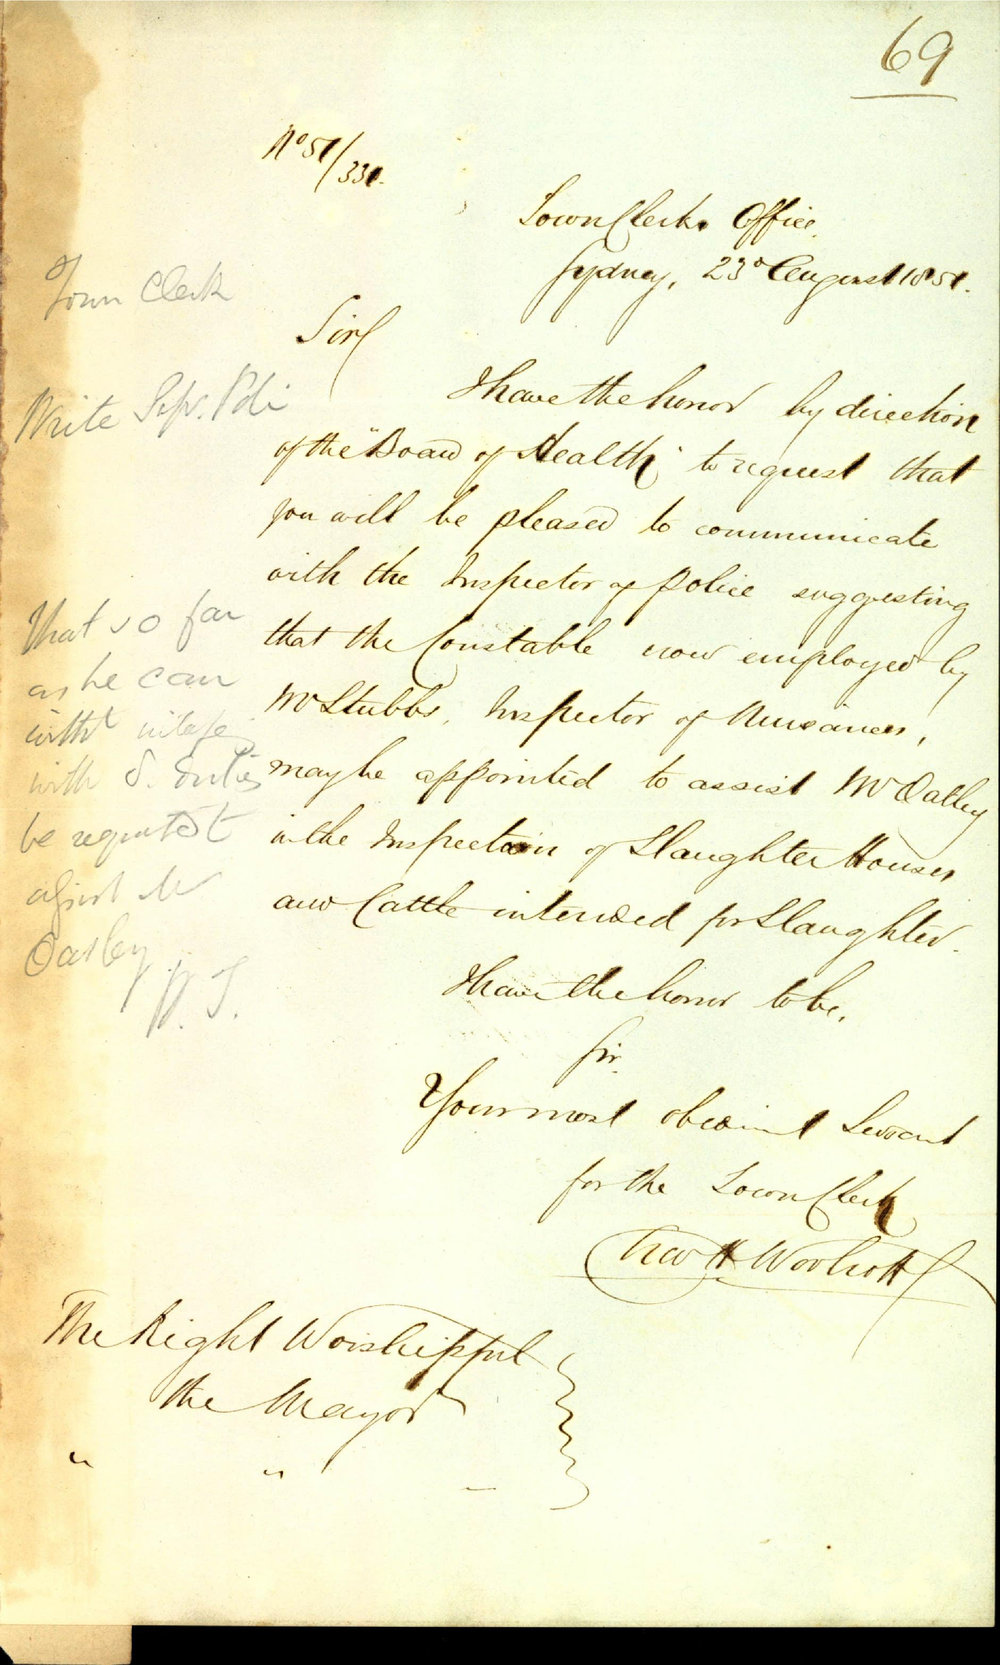 69
No 51/331.
Town Clerks Office,
Sydney, 23d August 1851.
Sir
I have the honor by direction
of the "Board of Health" to request that
you will be pleased to communicate
with the Inspector of Police suggesting
that the Constable now employed by
Mr Stubbs, Inspector of Nuisances,
may be appointed to assist Mr Oatley
in the Inspection of Slaughter Houses
and Cattle intended for Slaughter.
I have the honor to be,
Sir.
Your most obedient Servant
for the Town Clerk
H. Woolcott
The Right Worshipful
the Mayor
" "
Town Clerk
Write
That so far
as he can
witht
with
be requested
Mr
Oatley